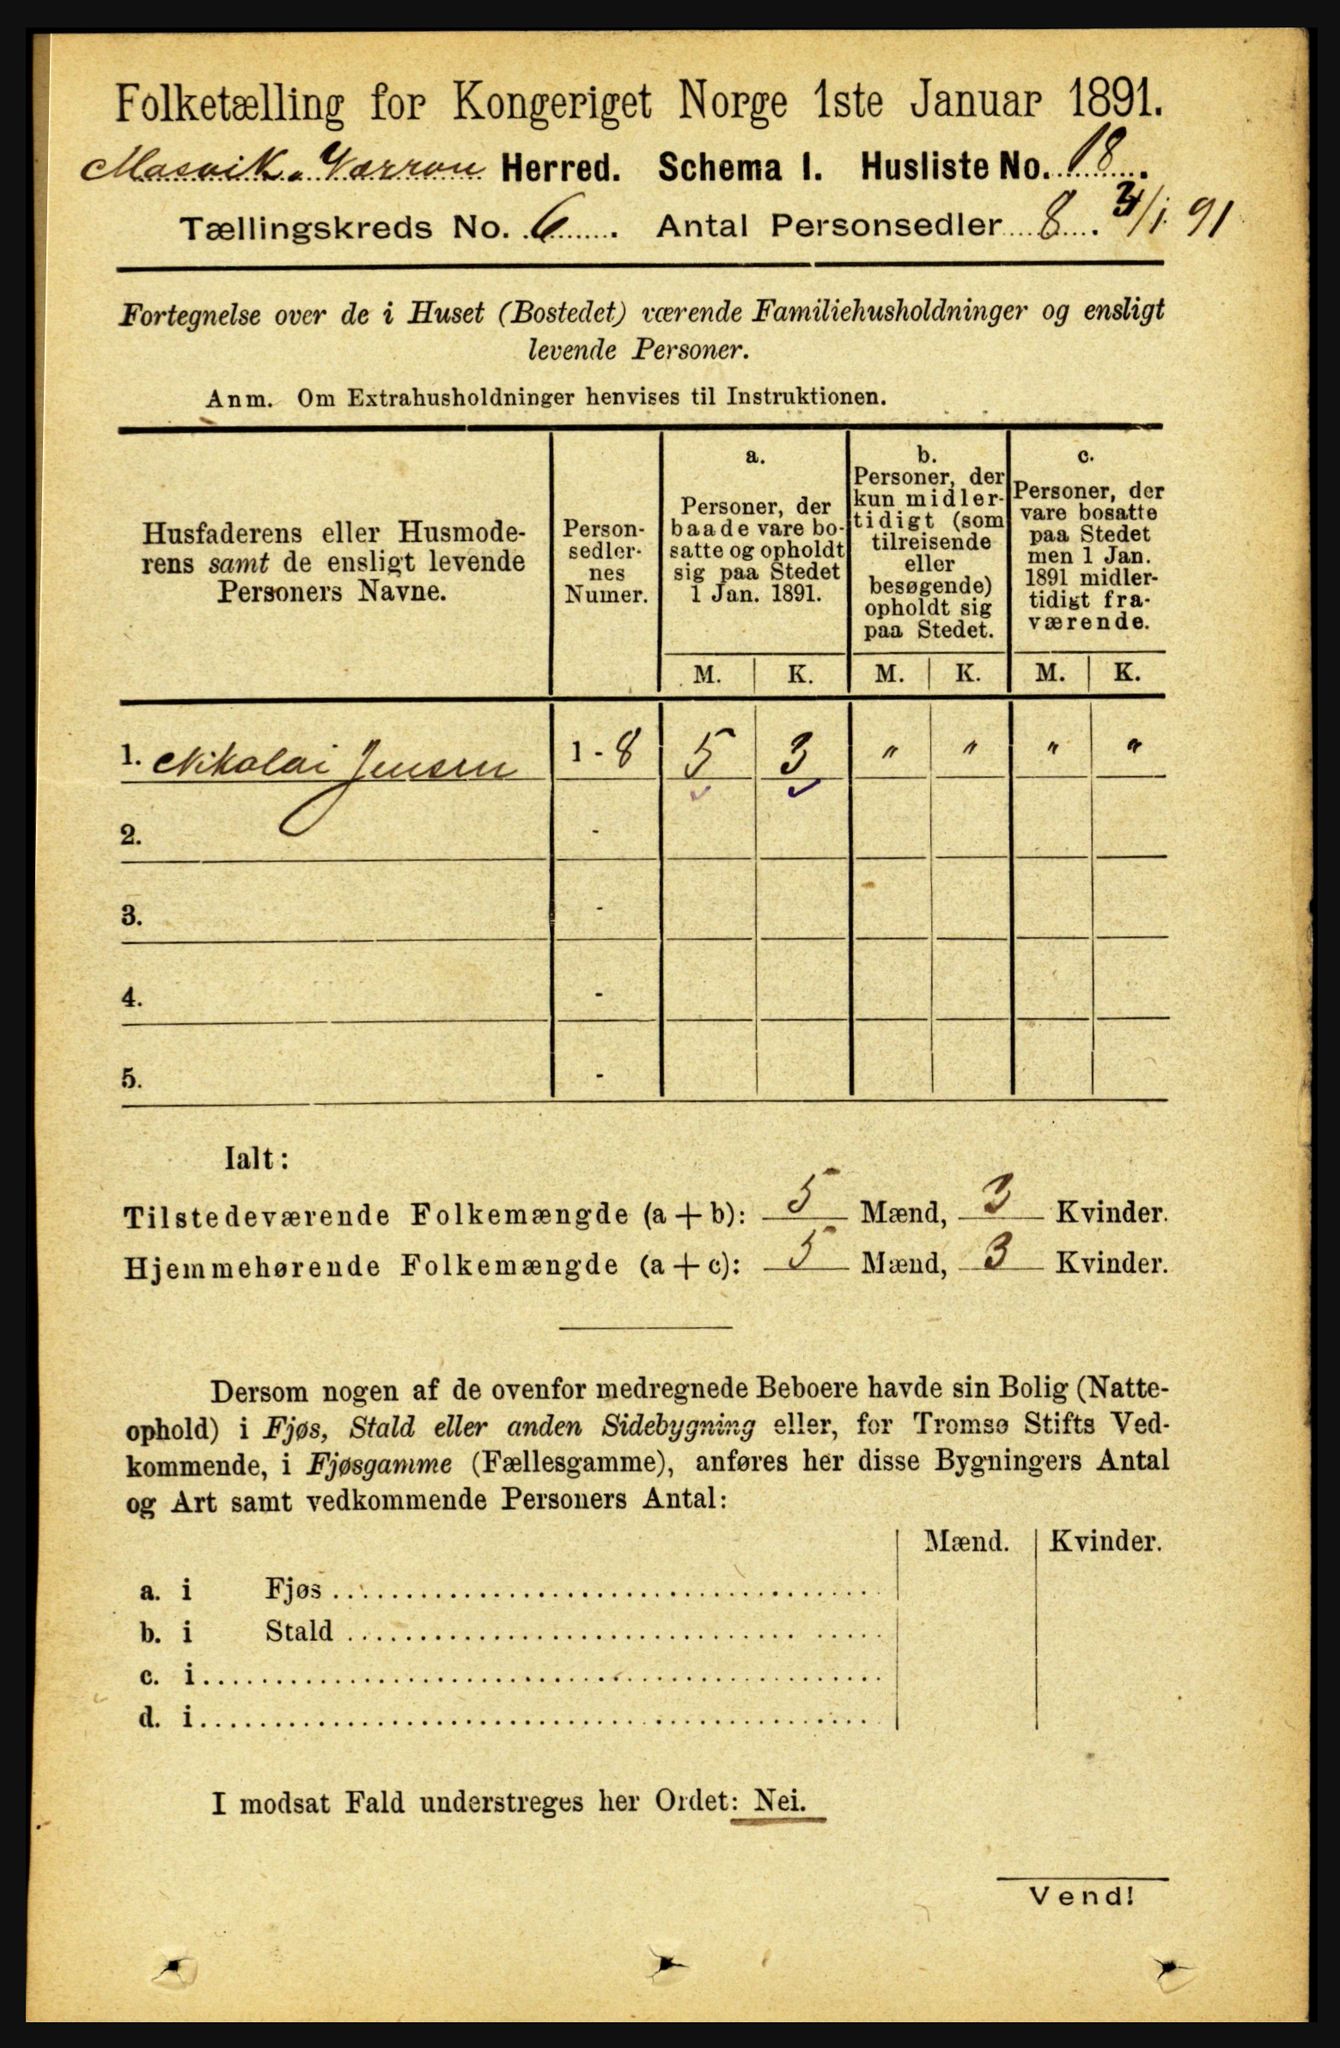 Folketælling for Kongeriget Norge 1ste Januar 1891.
Herred. Schema I. Husliste No. 18.
Tællingskreds No. 6. Antal Personsedler 8. 3/1 91
Fortegnelse over de i Huset (Bostedet) værende Familiehusholdninger og ensligt
levende Personer.
Anm. Om Extrahusholdninger henvises til Instruktionen.
Husfaderens eller Husmode-
rens samt de ensligt levende
Personers Navne.
Person-
sedler-
nes
Numer.
a.
Personer, der
baade vare bo-
satte og opholdt
sig paa Stedet
1 Jan. 1891.
b.
Personer, der
kun midler-
tidigt (som
tilreisende
eller
besøgende)
opholdt sig
paa Stedet.
c.
Personer, der
vare bosatte
paa Stedet
men 1 Jan.
1891 midler-
tidigt fra-
værende.
M. K. M. K. M. K.
1. Nikolai Jensen 1 - 8 5 3 " " " "
2. -
3. -
4. -
5. -
Ialt:
Tilstedeværende Folkemængde (a + b): 5 Mænd, 3 Kvinder.
Hjemmehørende Folkemængde (a + c): 5 Mænd, 3 Kvinder.
Dersom nogen af de ovenfor medregnede Beboere havde sin Bolig (Natte-
ophold) i Fjøs, Stald eller anden Sidebygning eller, for Tromsø Stifts Ved-
kommende, i Fjøsgamme (Fællesgamme), anføres her disse Bygningers Antal
og Art samt vedkommende Personers Antal:
Mænd. Kvinder.
a. i Fjøs
b. i Stald
c. i
d. i
I modsat Fald understreges her Ordet: Nei.
Vend!